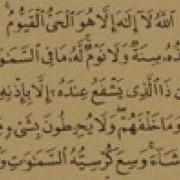 اللَّهُ لَا إِلَٰهَ إِلَّا هُوَ الْحَيُّ الْقَيُّومُ ۚ
ذُهُ سِنَةٌ وَلَا نَوْمٌ ۚ لَّهُ مَا فِي السَّمَٰوَ
ن ذَا الَّذِي يَشْفَعُ عِندَهُ إِلَّا بِإِذْنِهِ
وَمَا خَلْفَهُمْ ۖ وَلَا يُحِيطُونَ بِشَيْ
شَاءَ ۚ وَسِعَ كُرْسِيُّهُ السَّمَٰوَٰتِ وَ